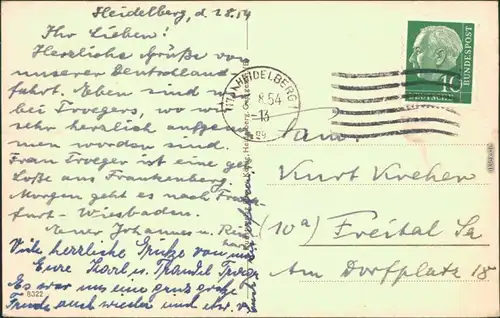 Heidelberg, d. 2.8.54
Ihr Lieben!
Herzliche Grüße von
unserer Deutschland
fahrt. Eben sind wir
bei Troegers, wo wir
sehr herzlich aufgenom
men worden sind.
Frau Troeger ist eine geb.
Loße aus Frankenberg.
Morgen geht es nach Frank
furt - Wiesbaden.
Euer Johannes u.
Viele herzliche Grüße von
Eure Karl u. Troeger
Es war uns eine ganz große
Freude auch wieder und
8322
(17a) HEIDELBERG 1
8.54
-13
10
DEUTSCHE
BUNDESPOST
Fam.
Kurt Krehen
(10a) Freital Sa
Am Dorfplatz 18